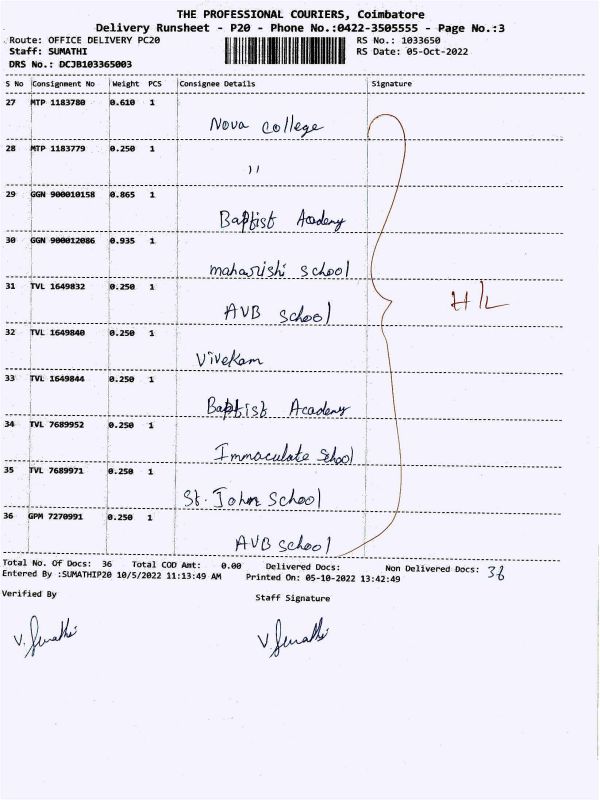 THE PROFESSIONAL COURIERS, Coimbatore
Delivery Runsheet - P20 - Phone No.:0422-3505555 - Page No.:3
Route: OFFICE DELIVERY PC20 RS No.: 1033650
Staff: SUMATHI RS Date: 05-Oct-2022
DRS No.: DCJB103365003
S No Consignment No Weight PCS Consignee Details Signature
27 MTP 1183780 0.610 1
Nova College
28 MTP 1183779 0.250 1
"
29 GGN 900010158 0.865 1
Baptist Acadeny
30 GGN 900012086 0.935 1
maharishi school
31 TVL 1649832 0.250 1
AVB school
H/L
32 TVL 1649840 0.250 1
Vivekam
33 TVL 1649844 0.250 1
Baptist Academy
34 TVL 7689952 0.250 1
Immaculate School
35 TVL 7689971 0.250 1
St. John School
36 GPM 7270991 0.250 1
AVB school
Total No. Of Docs: 36 Total COD Amt: 0.00 Delivered Docs: Non Delivered Docs: 36
Entered By :SUMATHIP20 10/5/2022 11:13:49 AM Printed On: 05-10-2022 13:42:49
Verified By Staff Signature
V. Sumathi V. Sumathi